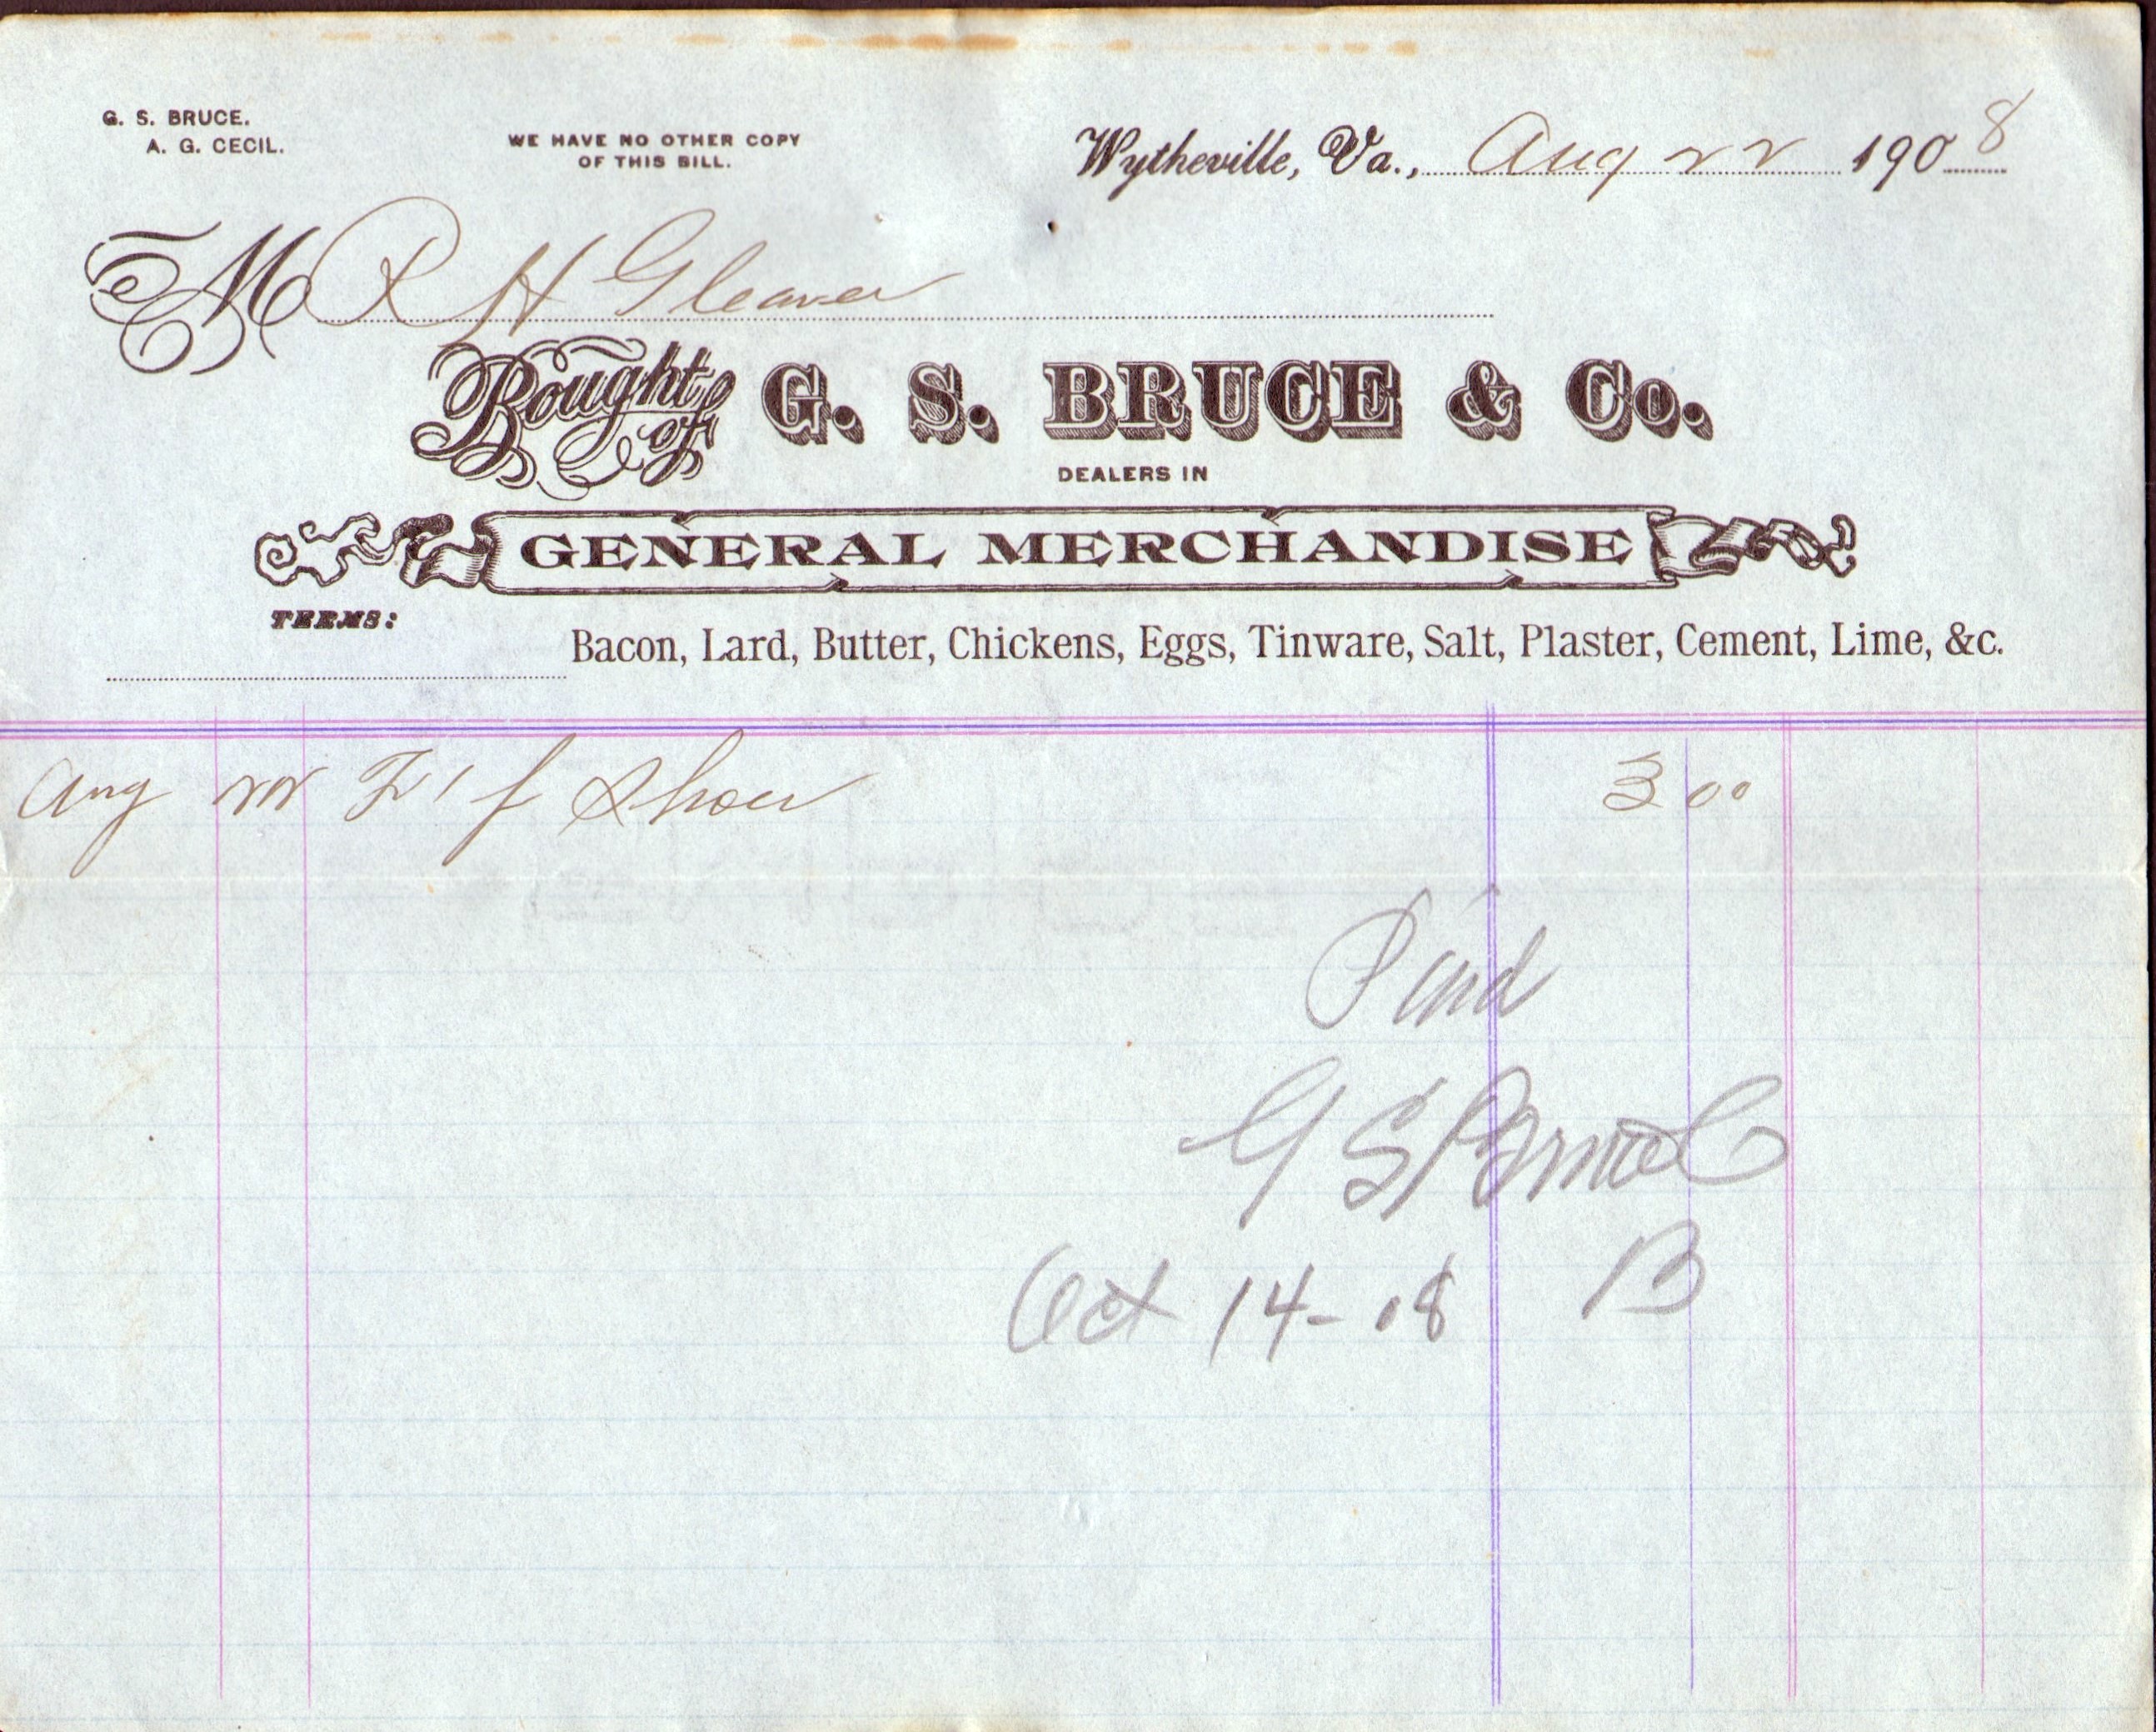 G. S. BRUCE.
A. G. CECIL.
WE HAVE NO OTHER COPY
OF THIS BILL.
Wytheville, Va., Aug 22 1908
M R H Gleaver
Bought of G. S. BRUCE & Co.
DEALERS IN
GENERAL MERCHANDISE
TERMS:
Bacon, Lard, Butter, Chickens, Eggs, Tinware, Salt, Plaster, Cement, Lime, &c.
Aug 22 Shoes 3 00
Paid
G S Bruce Co
Oct 14-08 B